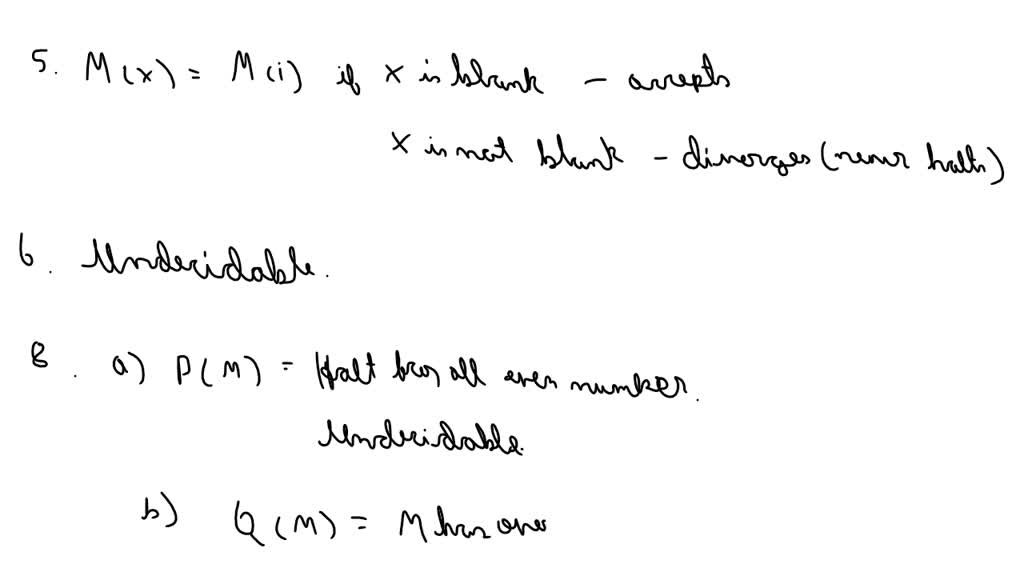 5. M(x) = M(i) if x is blank - accepts
x is not blank - diverges (never halts)
6. Undecidable.
8. a) P(M) = Halt for all even number.
Undecidable.
b) Q(M) = M has one